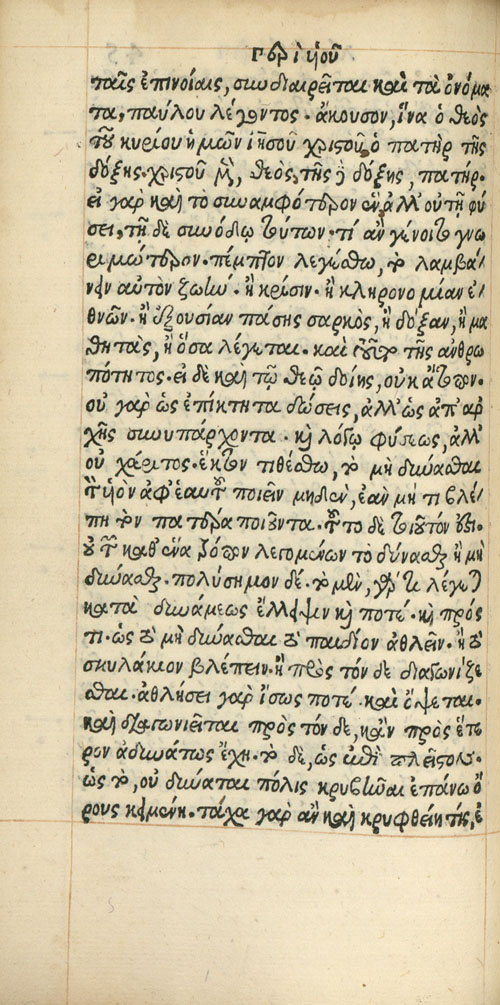 Περὶ ὑιοῦ
ταῖς ἐπινοίαις, συνδιαιρεῖται καὶ τὰ ὀνόμα
τα, παύλου λέγοντος · ἄκουσον, ἵνα ὁ θεὸς
τοῦ κυρίου ἡμῶν ἰησοῦ χριστοῦ, ὁ πατὴρ τῆς
δόξης · χριστοῦ μὲν, θεὸς, τῆς δὲ δόξης, πατήρ.
εἰ γὰρ καὶ τὸ συναμφότερον ἓν, ἀλλ' οὐ τῇ φύ
σει, τῇ δὲ συνόδῳ τούτων · τί ἂν γένοιτο γνω
ριμώτερον · πέμπτον λεγέσθω, τὸ λαμβά
νειν αὐτὸν ζωὴν · ἢ κρίσιν · ἢ κληρονομίαν ἐ
θνῶν · ἢ ἐξουσίαν πάσης σαρκὸς, ἢ δόξαν, ἢ μα
θητὰς, ἢ ὅσα λέγεται · καὶ τοῦτο τῆς ἀνθρω
πότητος · εἰ δὲ καὶ τῷ θεῷ δοίης, οὐκ ἄτοπον ·
οὐ γὰρ ὡς ἐπίκτητα δώσεις, ἀλλ' ὡς ἀπ' ἀρ
χῆς συνυπάρχοντα · καὶ λόγῳ φύσεως, ἀλλ'
οὐ χάριτος · ἕκτον τιθέσθω, τὸ μὴ δύνασθαι
τὸν ὑιὸν ἀφ' ἑαυτοῦ ποιεῖν μηδὲν, ἐὰν μή τι βλέ
πῃ τὸν πατέρα ποιοῦντα · τοῦτο δὲ τοιοῦτόν ἐστι ·
οὐ τῶν καθ' ἕνα τρόπον λεγομένων τὸ δύνασθαι ἢ μὴ
δύνασθαι · πολύσημον δέ · τὸ μὲν, γάρ τι λέγεται
κατὰ δυνάμεως ἔλλειψιν καὶ ποτέ · καὶ πρός
τι · ὡς τὸ μὴ δύνασθαι τὸ παιδίον ἀθλεῖν · ἢ τὸ
σκυλάκιον βλέπειν · ἢ πρὸς τόν δε διαγωνίζε
σθαι · ἀθλήσει γὰρ ἴσως ποτέ · καὶ ὄψεται ·
καὶ διαγωνιεῖται πρὸς τόν δε, κἂν πρὸς ἕτε
ρον ἀδυνάτως ἔχῃ · τὸ δὲ, ὡς ἐπὶ πλεῖστον ·
ὡς τὸ, οὐ δύναται πόλις κρυβῆναι ἐπάνω ὄ
ρους κειμένη · τάχα γὰρ ἂν καὶ κρυφθείη τίς, ἐ